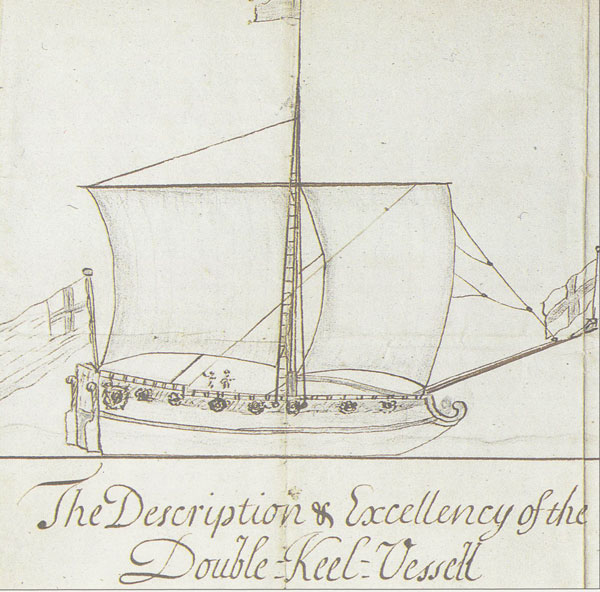 The Description & Excellency of the
Double-Keel-Vessell